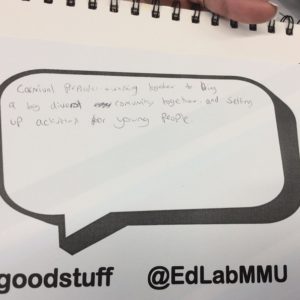 Carnival Parade - working together to bring
a big diverse comunity together and setting
up activities for young people.
goodstuff @EdLabMMU